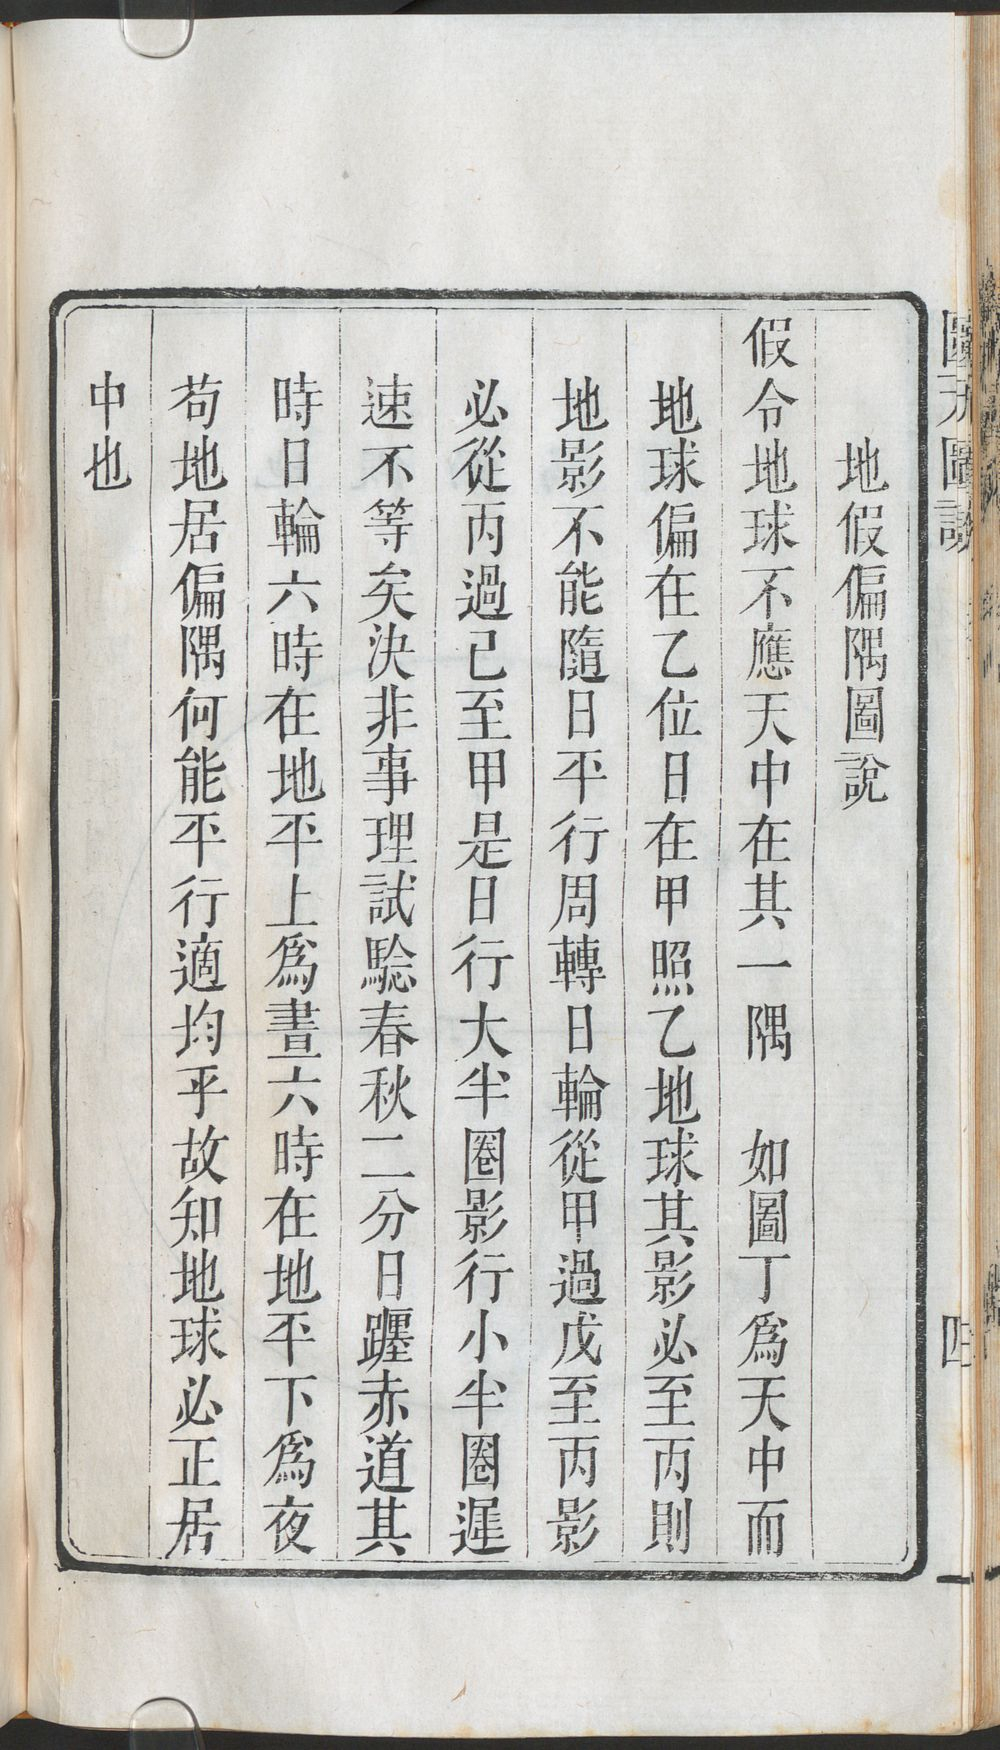 地假偏隅圖說
假令地球不應天中在其一隅　如圖丁爲天中而
地球偏在乙位日在甲照乙地球其影必至丙則
地影不能隨日平行周轉日輪從甲過戊至丙影
必從丙過己至甲是日行大半圈影行小半圈遲
速不等矣決非事理試騐春秋二分日躔赤道其
時日輪六時在地平上爲晝六時在地平下爲夜
苟地居偏隅何能平行適均乎故知地球必正居
中也